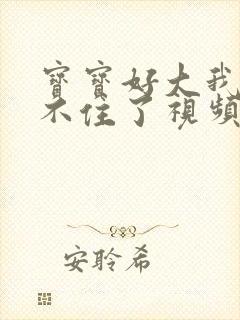 寶寶好大我
不住了視頻
安聆希